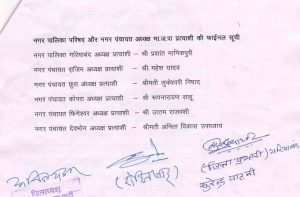 नगर पालिका परिषद और नगर पंचायत अध्यक्ष भा.ज.पा प्रत्याशी की फाईनल सूची
नगर पालिका गरियाबंद अध्यक्ष प्रत्याशी – श्री प्रशांत मानिकपुरी
नगर पंचायत राजिम अध्यक्ष प्रत्याशी – श्री महेश यादव
नगर पंचायत छुरा अध्यक्ष प्रत्याशी – श्रीमती लुकेश्वरी निषाद
नगर पंचायत कोपरा अध्यक्ष प्रत्याशी – श्री रूपनारायण साहू
नगर पंचायत फिंगेश्वर अध्यक्ष प्रत्याशी – श्री उत्तम राजवंशी
नगर पंचायत देवभोग अध्यक्ष प्रत्याशी – श्रीमती अनिता विकास उपाध्याय
जिलाध्यक्ष
(जिला प्रभारी) गरियाबंद